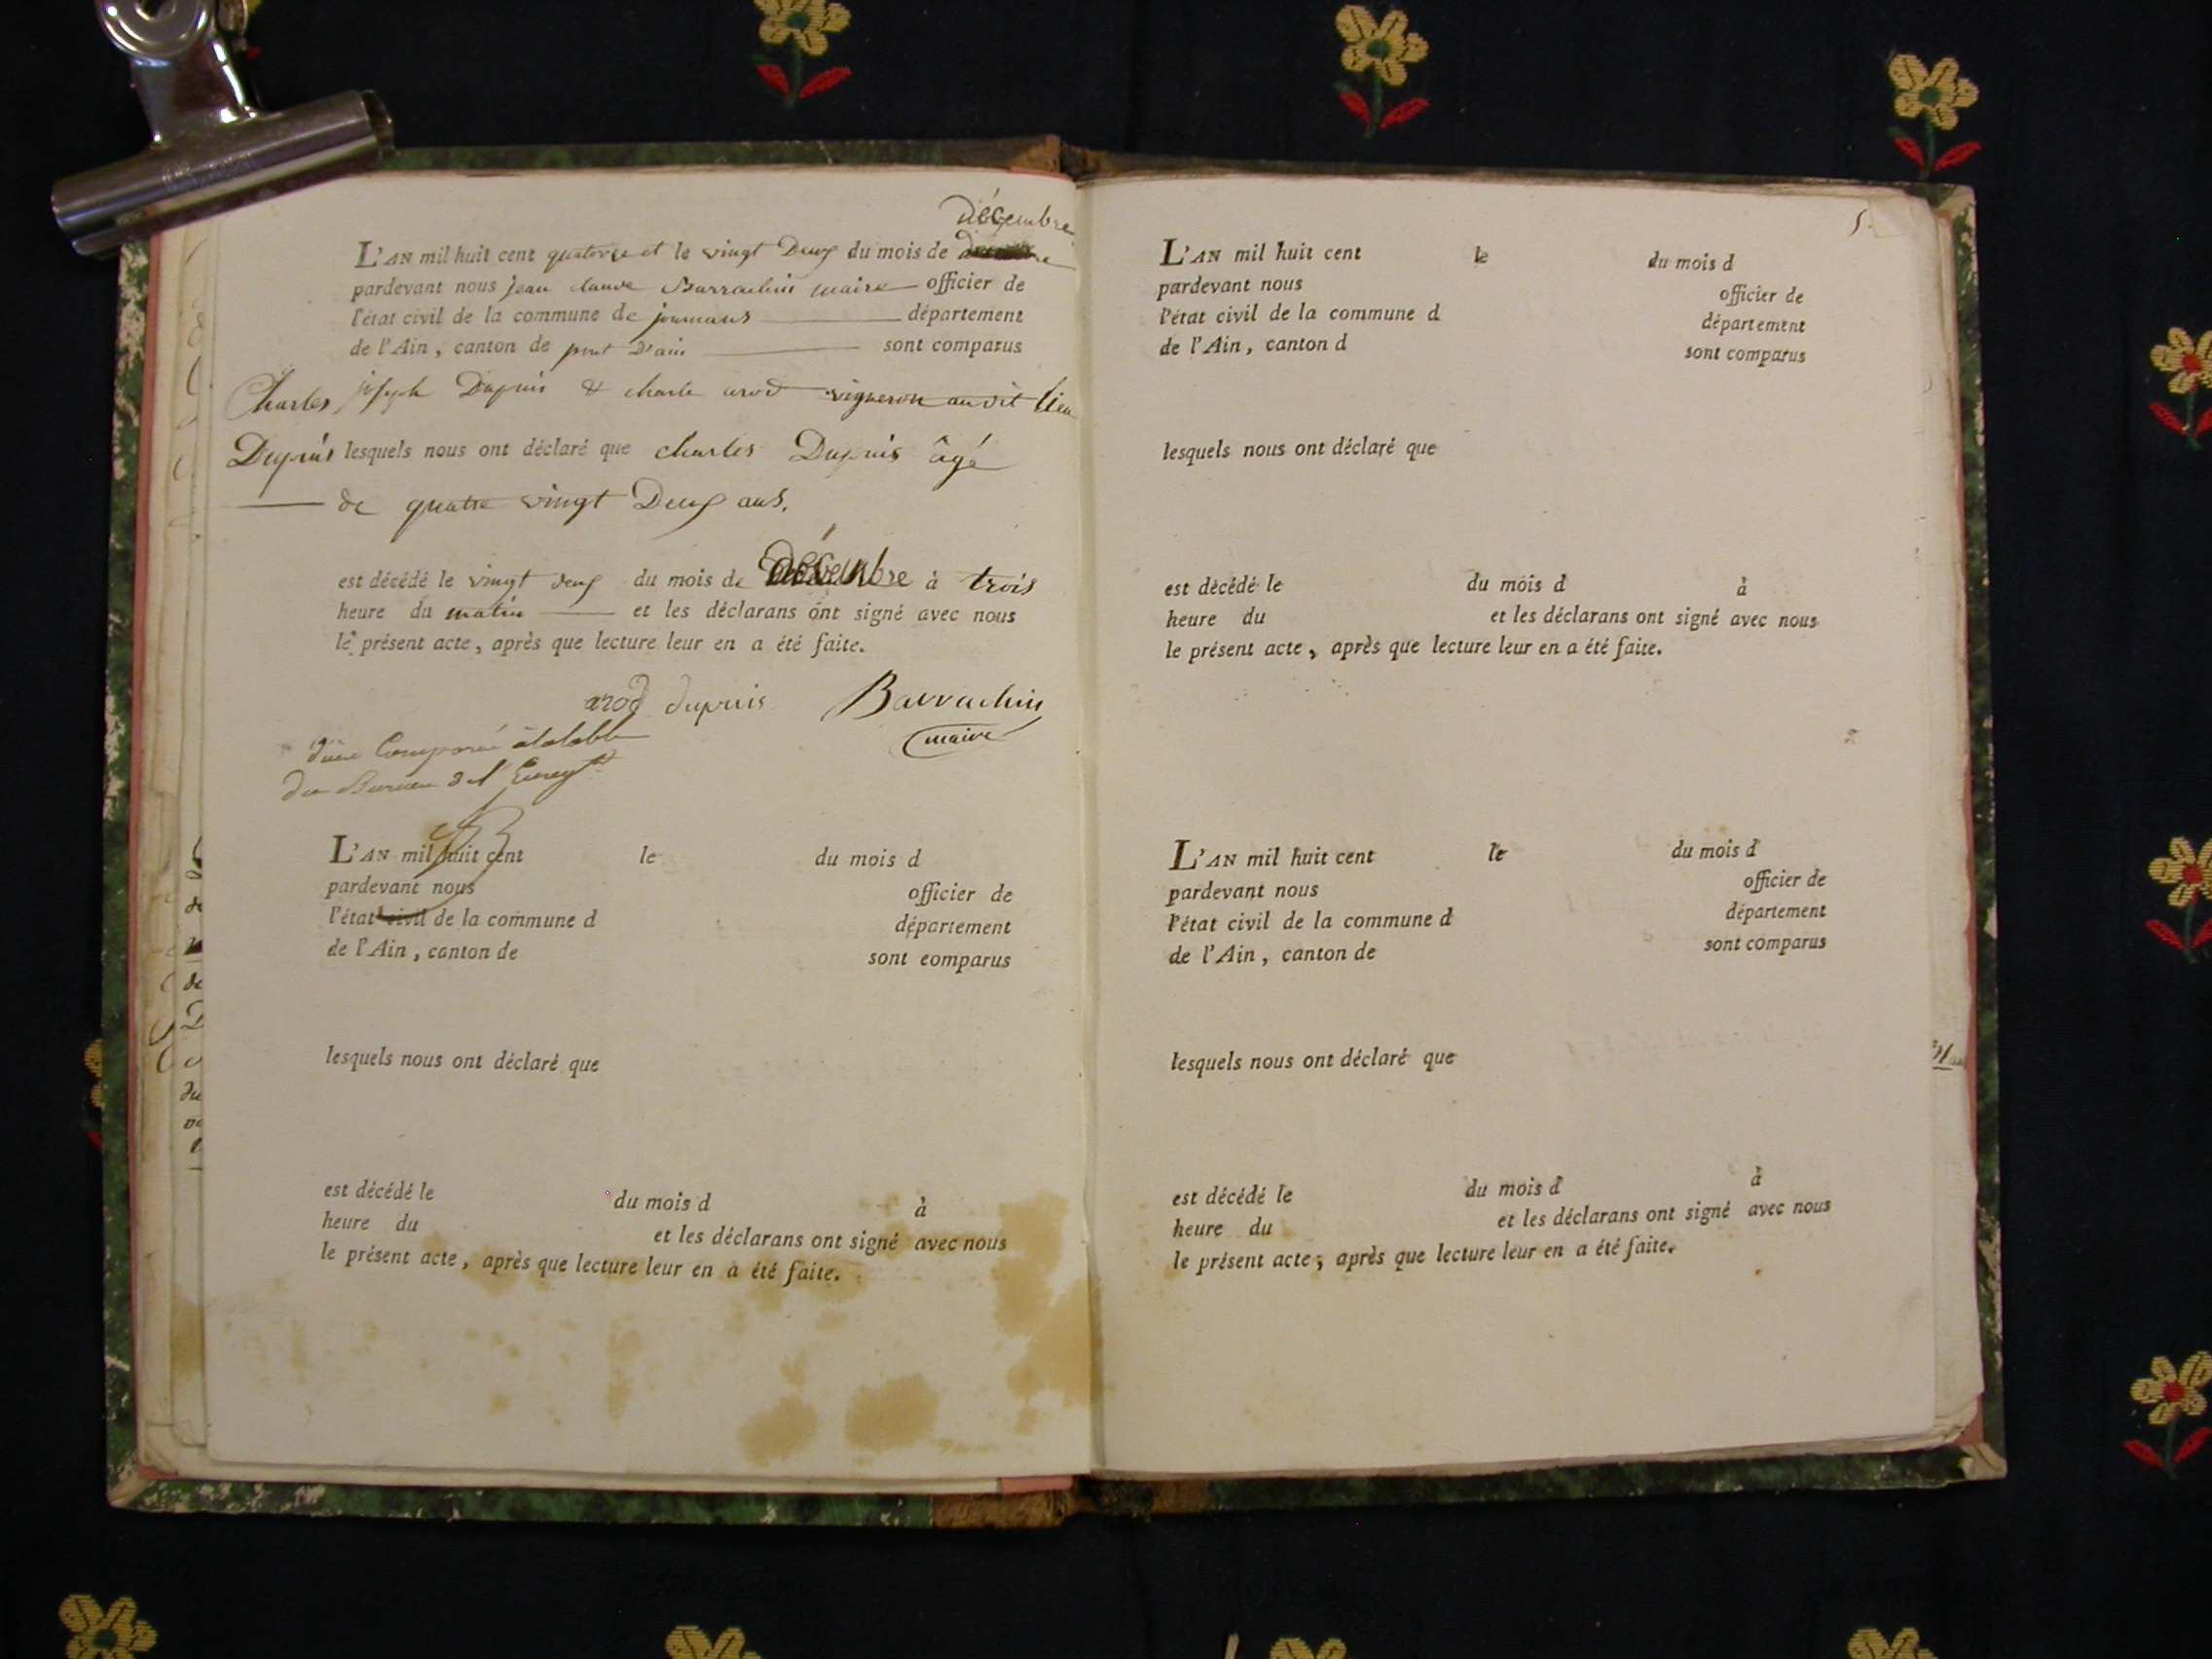 décembre
L'AN mil huit cent quatorze et le vingt Deux du mois de
pardevant nous jean claude Barrachin maire officier de
l'état civil de la commune de journans département
de l'Ain, canton de pont D'ain sont comparus
Charles joseph Dupuis & charle arod vigneron au dit lieu
Dupuis lesquels nous ont déclaré que charles Dupuis âgé
de quatre vingt Deux ans.
est décédé le vingt deux du mois de décembre à trois
heure du matin et les déclarans ont signé avec nous
le présent acte, après que lecture leur en a été faite.
arod dupuis Barrachin
maire
du Bureau de l'
L'AN mil huit cent le du mois d
pardevant nous officier de
l'état civil de la commune d département
de l'Ain, canton de sont eomparus
lesquels nous ont déclaré que
est décédé le du mois d à
heure du et les déclarans ont signé avec nous
le présent acte, après que lecture leur en a été faite.
5.
L'AN mil huit cent le du mois d
pardevant nous officier de
l'état civil de la commune d département
de l'Ain, canton d sont comparus
lesquels nous ont déclaré que
est décédé le du mois d à
heure du et les déclarans ont signé avec nous
le présent acte, après que lecture leur en a été faite.
L'AN mil huit cent le du mois d
pardevant nous officier de
l'état civil de la commune d département
de l'Ain, canton de sont comparus
lesquels nous ont déclaré que
est décédé le du mois d à
heure du et les déclarans ont signé avec nous
le présent acte, après que lecture leur en a été faite.